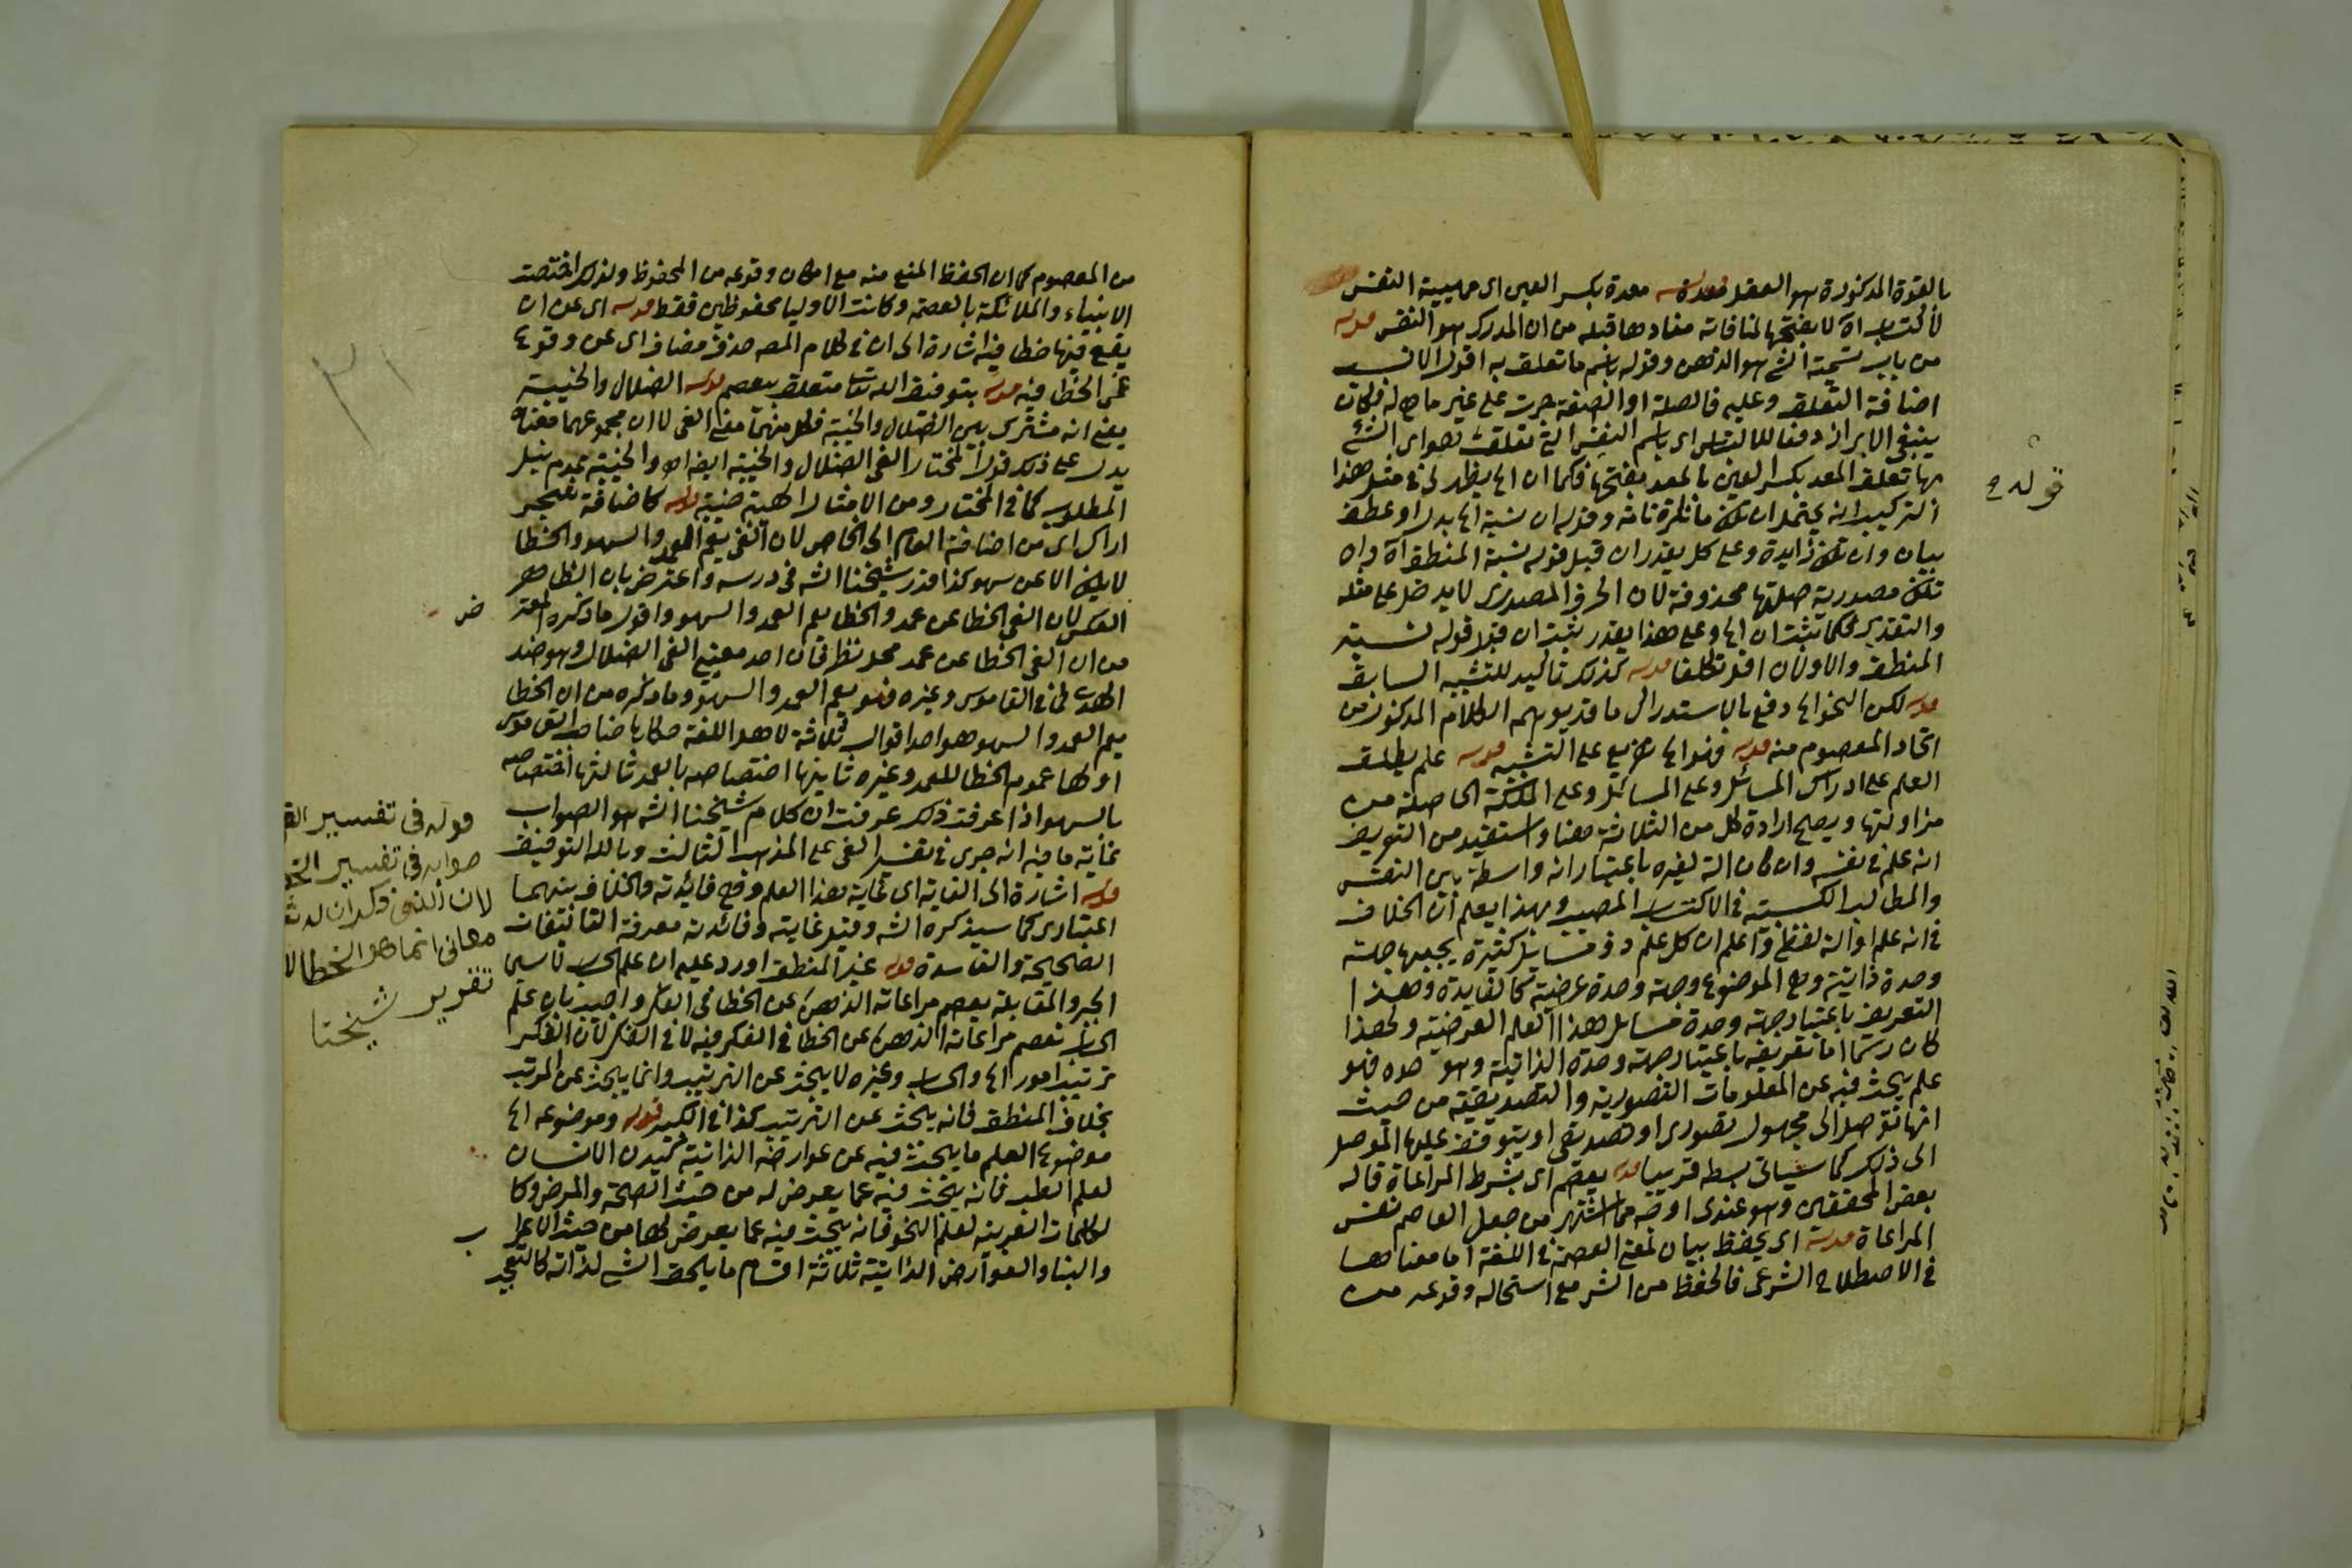 بالقوة المذكورة هو العقل قوله معدة بكسر العين اى مهيية النفس
لاكتساب اه لا بفتحها لمنافاته مفادها قبله من ان المدرك هو النفس قوله
من باب تسمية الشئ هو الذهن وقوله باسم ما تعلق به اقول الانسب
اضافة التعلق وعليه فالصلة او الصفة جرت على غير ما هى له فكان
ينبغى الابراز دفعا للالتباس اى باسم النفس التى تعلقت هو اى الشئ
بها تعلق المعد بكسر العين بالمعد بفتحها فكما ان اه يظهر لى فى مثل هذا
التركيب انه يحتمل ان تكون ما نكرة تامة وقوله ان نسبة اه بدل او عطف
بيان وان تكون زايدة وعلى كل يقدر ان قبل قوله نسبة المنطق اه وان
تكون مصدرية صلتها محذوفة لان الحرف المصدرى لا يدخل على مثله
والتقدير فكما ثبت ان اه وعلى هذا يقدر ثبت ان قبل قوله نسبة
المنطق والاولان اقل تكلفا قوله كذلك تاكيد للتشبيه السابق
قوله لكن النحو اه دفع بالاستدراك ما قد يوهمه الكلام المذكور من
اتحاد المعصوم منه قوله فهو اه تفريع على التشبيه قوله علم يطلق
العلم على ادراك المسائل وعلى المسائل وعلى الملكة الحاصلة من
مزاولتها ويصح ارادة كل من الثلاثة هنا واستفيد من التعريف
انه علم فى نفسه وان كان الة لغيره باعتبار انه واسطة بين النفس
والمطالب الكسبية فى الاكتساب المصيب وبهذا يعلم ان الخلاف
فى انه علم او الة لفظى واعلم ان كل علم ذو مسائل كثيرة يجمعها جهة
وحدة ذاتية وهى الموضوع وجهة وحدة عرضية كالفايدة وهذا
التعريف باعتبار جهة وحدة مسائل هذا العلم العرضية ولهذا
كان رسما اما تعريفه باعتبار جهة وحدة الذاتية وهو حده فهو
علم يبحث فيه عن المعلومات التصورية والتصديقية من حيث
انها توصل الى مجهول تصورى او تصديقى او يتوقف عليها الموصل
الى ذلك كما سياتى بسطه قريبا قوله يعصم اى بشرط المراعاة قاله
بعض المحققين وهو عندى اوضح مما اشتهر من جعل العاصم نفس
المراعاة قوله اى يحفظ بيان لمعنى العصمة فى اللغة اما معناها
فى الاصطلاح الشرعى فالحفظ من الشر مع استحالة وقوعه من
قوله ح
من المعصوم كما ان الحفظ المنع منه مع امكان وقوعه من المحفوظ ولذلك اختصت
الانبياء والملائكة بالعصمة وكانت الاوليا محفوظين فقط قوله اى عن ان
يقع فيها خطا فيه اشارة الى ان فى كلام المصه حذف مضاف اى عن وقوع
غى الخطا فيه قوله بتوفيق الله تعالى متعلق بيعصم قوله الضلال والخيبة
يعنى انه مشترك بين الضلال والخيبة فكل منهما معنى الغى لا ان مجموعهما معناه
يدل على ذلك قول المختار الغى الضلال والخيبة ايضا اه والخيبة عدم نيل
المطلوب كما فى المختار ومن الامثال الهيبة خيبة قوله كاضافة شجر
اراك اى من اضافة العام الى الخاص لان الغى يعم العمد والسهو والخطا
لا يكون الا عن سهو كذا قرر شيخنا الشه فى درسه واعترض بان الظاهر
العكس لان الغى الخطا عن عمد والخطا يعم العمد والسهو واقول ما ذكره المعترض
من ان الغى الخطا عن عمد محل نظر فان احد معنيى الغى الضلال وهو ضد
الهدى كما فى القاموس وغيره فهو يعم العمد والسهو وما ذكره من ان الخطا
يعم العمد والسهو هو احد اقوال ثلاثة لاهل اللغة حكاها صاحب القاموس
اولها عموم الخطا للعمد وغيره ثانيها اختصاصه بالعمد ثالثها اختصاصه
بالسهو اذا عرفت ذلك عرفت ان كلام شيخنا الشه هو الصواب
غاية ما فيه انه جرى فى تفسير الغى على المذهب الثالث وبالله التوفيق
قوله اشارة الى الغاية اى غاية هذا العلم وهى فائدته والخلاف بينهما
اعتبارى كما سيذكره الشه وقيل غايته وفائدته معرفة
الصحيحة والفاسدة قوله غير المنطق اورد عليه ان علم الحساب لا سيما
الجبر والمقابلة يعصم مراعاته الذهن عن الخطا فى الفكر واجيب بان علم
الحساب تعصم مراعاته الذهن عن الخطا فى الفكر فيه لا فى الفكر لان الفكر
ترتيب امور اه والحساب وغيره لا يبحث عن الترتيب وانما يبحث عن المرتب
بخلاف المنطق فانه يبحث عن الترتيب كذا فى الكبير قوله وموضوعه اه
موضوع العلم ما يبحث فيه عن عوارضه الذاتية كبدن الانسان
لعلم الطب فانه يبحث فيه عما يعرض له من حيث الصحة والمرض وكا
لكلمات العربية لعلم النحو فانه يبحث فيه عما يعرض لها من حيث الاعراب
والبنا والعوارض الذاتية ثلاثة اقسام ما يلحق الشئ لذاته كالتعجب
٣١
قوله فى تفسير الغى
صوابه فى تفسير الخطا
لان الذى ذكر ان له ثلاثة
معانى انما هو الخطا لا
تقرير شيخنا